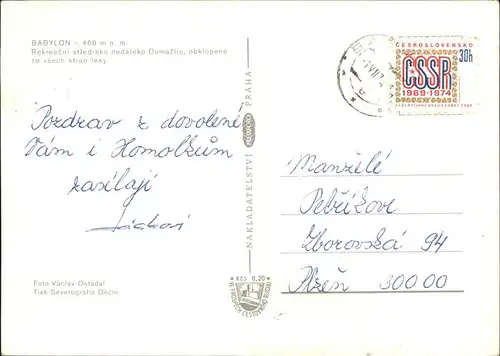 BABYLON – 460 m n. m.
Rekreační středisko nedaleko Domažlic, obklopené
ze všech stran lesy.
ČESKOSLOVENSKO
30h
ČSSR
1969-1974
Pozdrav z dovolené
Vám i Homolkům
zasílají
NAKLADATELSTVÍ PRAHA
Manželé
Petříkovi
Zborovská 94
Plzeň 30000
KČS 0,20
VE PROSPĚCH CESTOVNÍHO RUCHU
Foto Václav Ostádal
Tisk Severografia Děčín